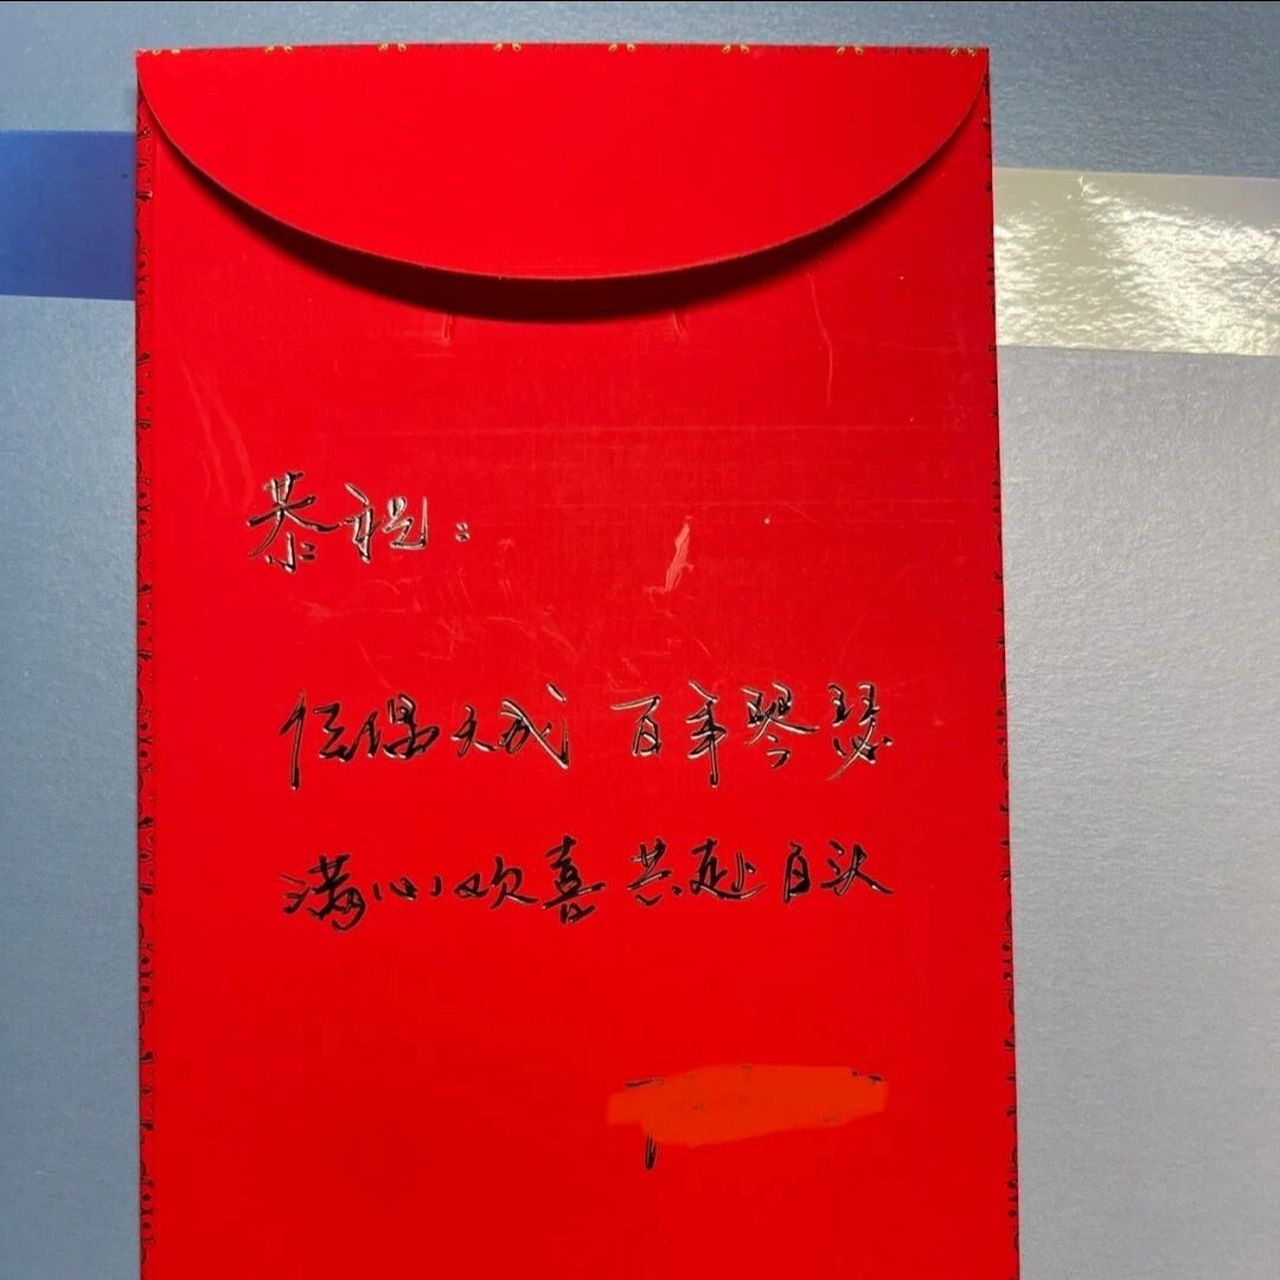 恭祝：
佳偶天成 百年琴瑟
满心欢喜 共赴白头